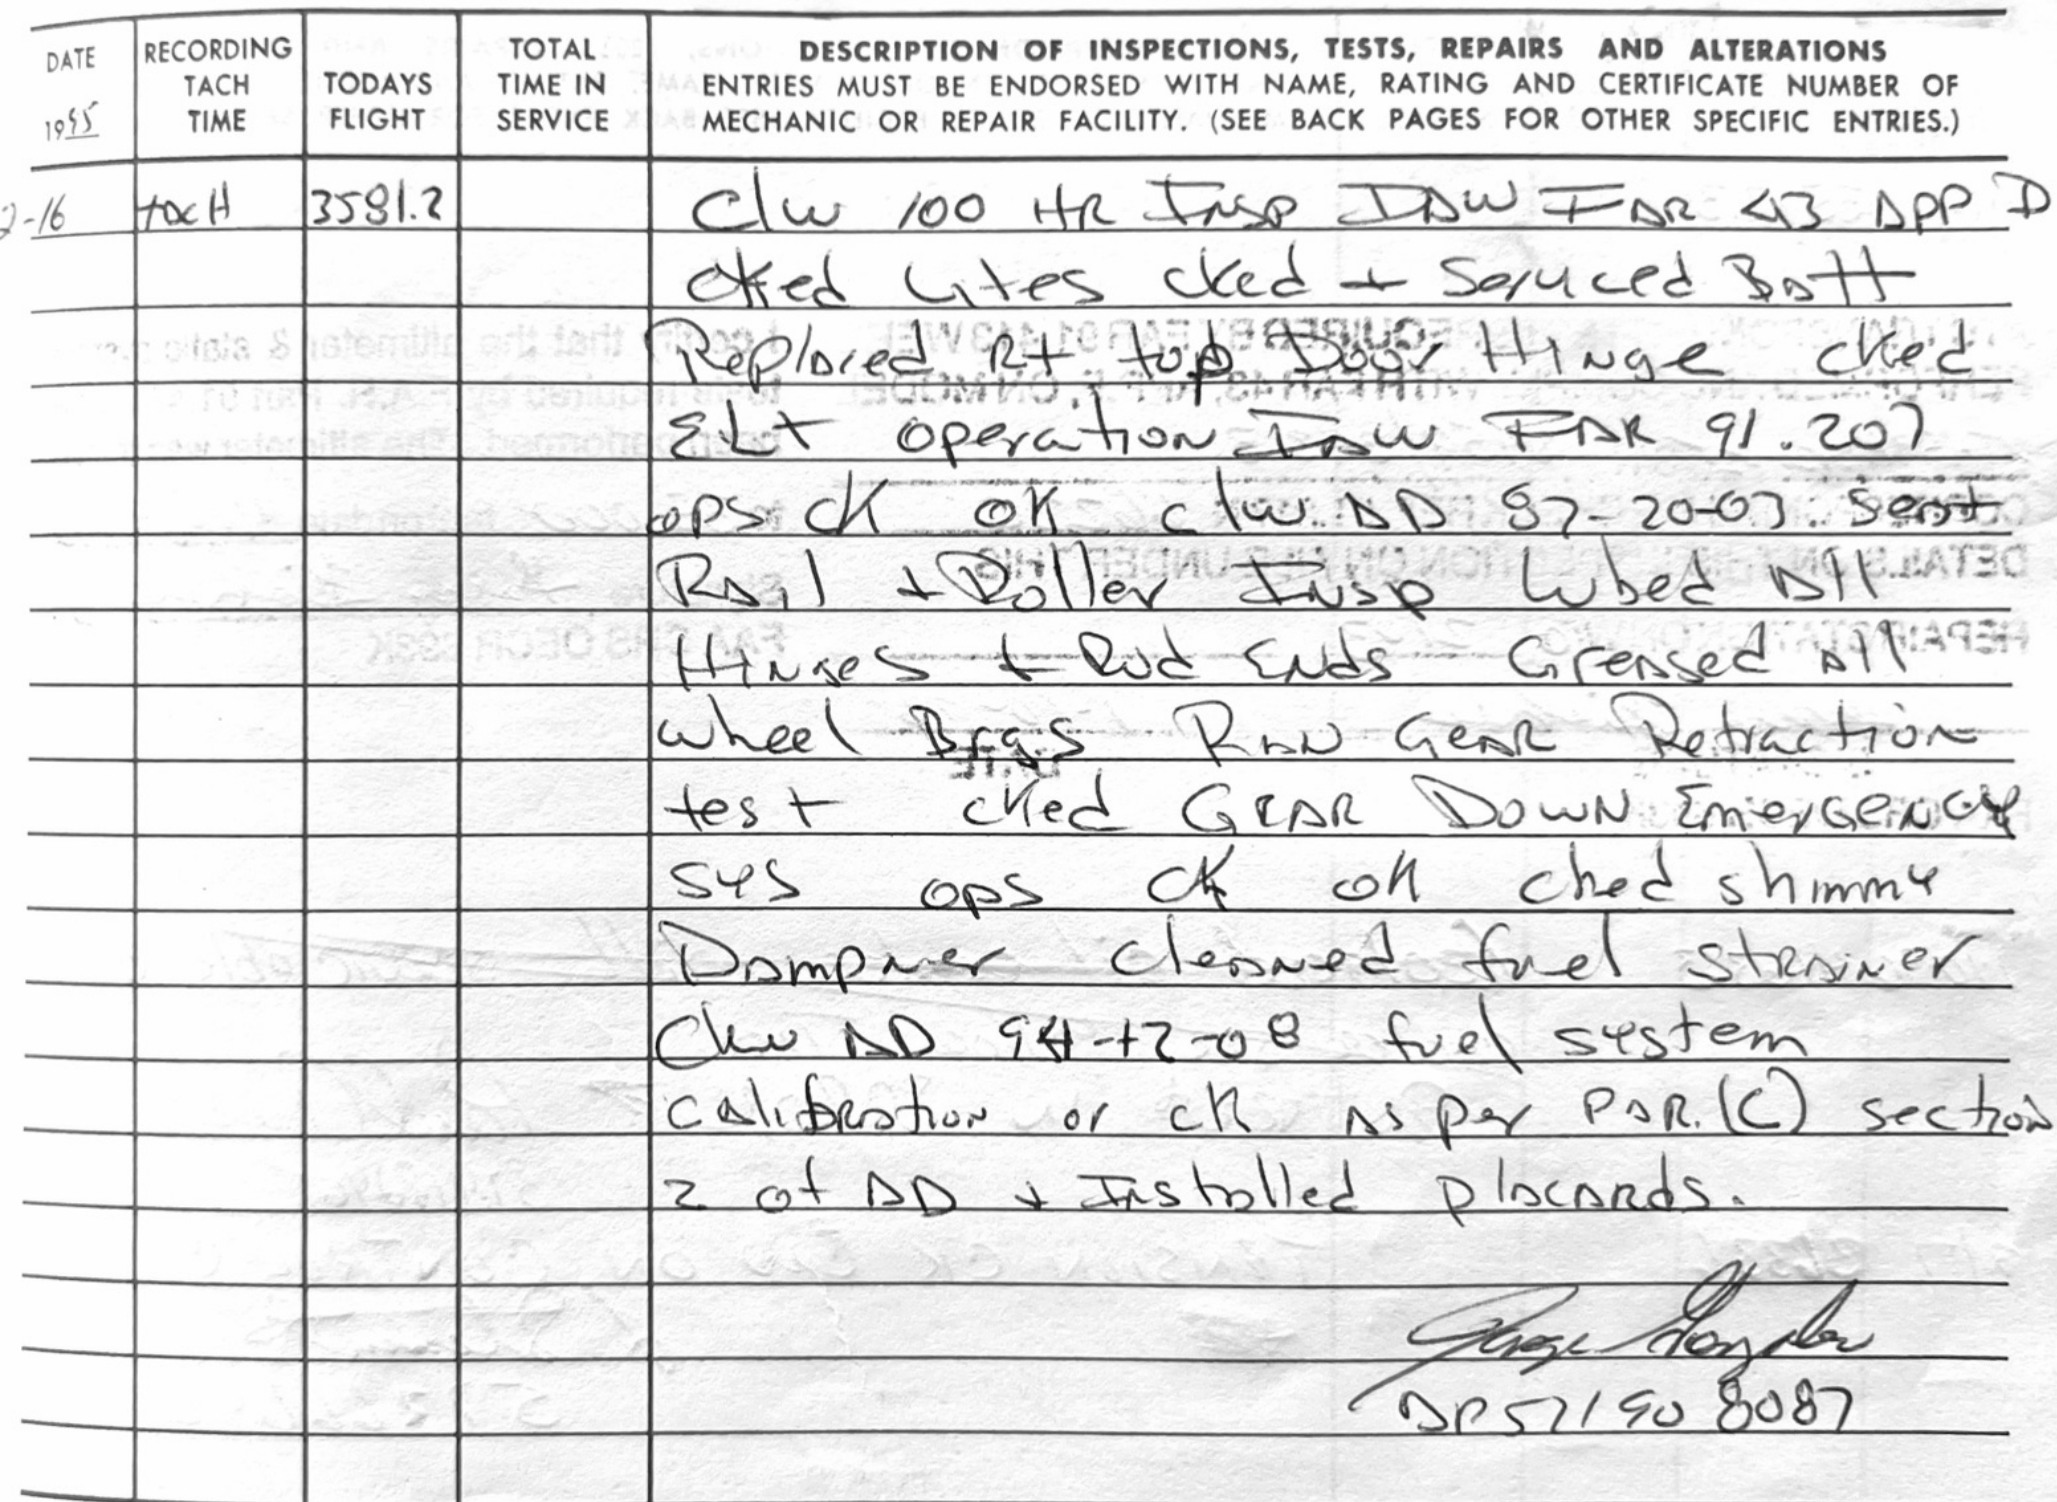 DATE
1995
RECORDING
TACH
TIME
TODAYS
FLIGHT
TOTAL
TIME IN
SERVICE
DESCRIPTION OF INSPECTIONS, TESTS, REPAIRS AND ALTERATIONS
ENTRIES MUST BE ENDORSED WITH NAME, RATING AND CERTIFICATE NUMBER OF
MECHANIC OR REPAIR FACILITY. (SEE BACK PAGES FOR OTHER SPECIFIC ENTRIES.)
2-16 tacH 3581.2 C/w 100 HR Insp IAW FAR 43 APP D
cKed Lites cKed + Serviced Batt
Replaced Rt top Door Hinge cKed
ELT operation IAW FAR 91.207
ops cK oK c/w AD 87-20-03 Seat
Rail + Roller Insp lubed All
Hinges + Rod Ends Greased All
wheel Brgs RAN GEAR Retraction
test cKed GEAR DOWN EmerGENCY
sys ops cK oK cked shimmy
Dampner cleaned fuel strainer
C/w AD 94-12-08 fuel system
calibration or cK As per PAR.(C) section
2 of AD + Installed placards.
AP571908087